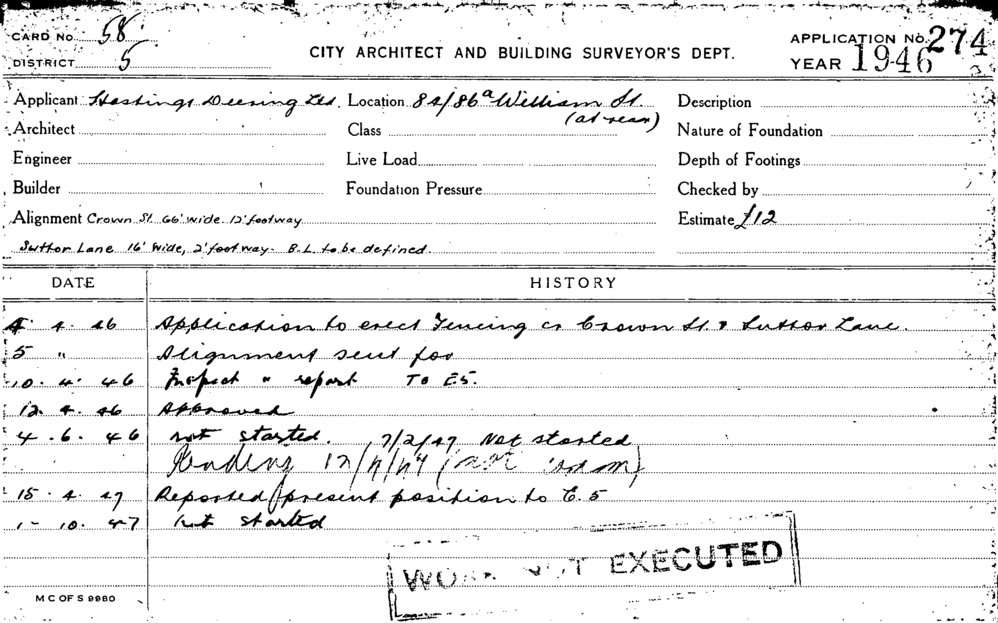 CARD No. 58
DISTRICT 5
CITY ARCHITECT AND BUILDING SURVEYOR'S DEPT.
APPLICATION No. 274
YEAR 1946
Applicant Hastings Deering Ltd. Location 84/86a William St. Description
(at rear)
Architect Class Nature of Foundation
Engineer Live Load Depth of Footings
Builder Foundation Pressure Checked by
Alignment Crown St. 66' wide 12' footway Estimate £12
Suttor Lane 16' wide, 2' footway - B.L. to be defined.
DATE HISTORY
4. 4. 46 Application to erect Fencing cr Crown St. & Suttor Lane.
5 " Alignment sent for
10. 4. 46 Inspect " report To E5.
12. 4. 46 Approved
4. 6. 46 not started. 7/2/47 Not started
Pending
15. 4. 47 Reported present position to E.5
1- 10. 47 not started
WORK NOT EXECUTED
M C OF S 9980